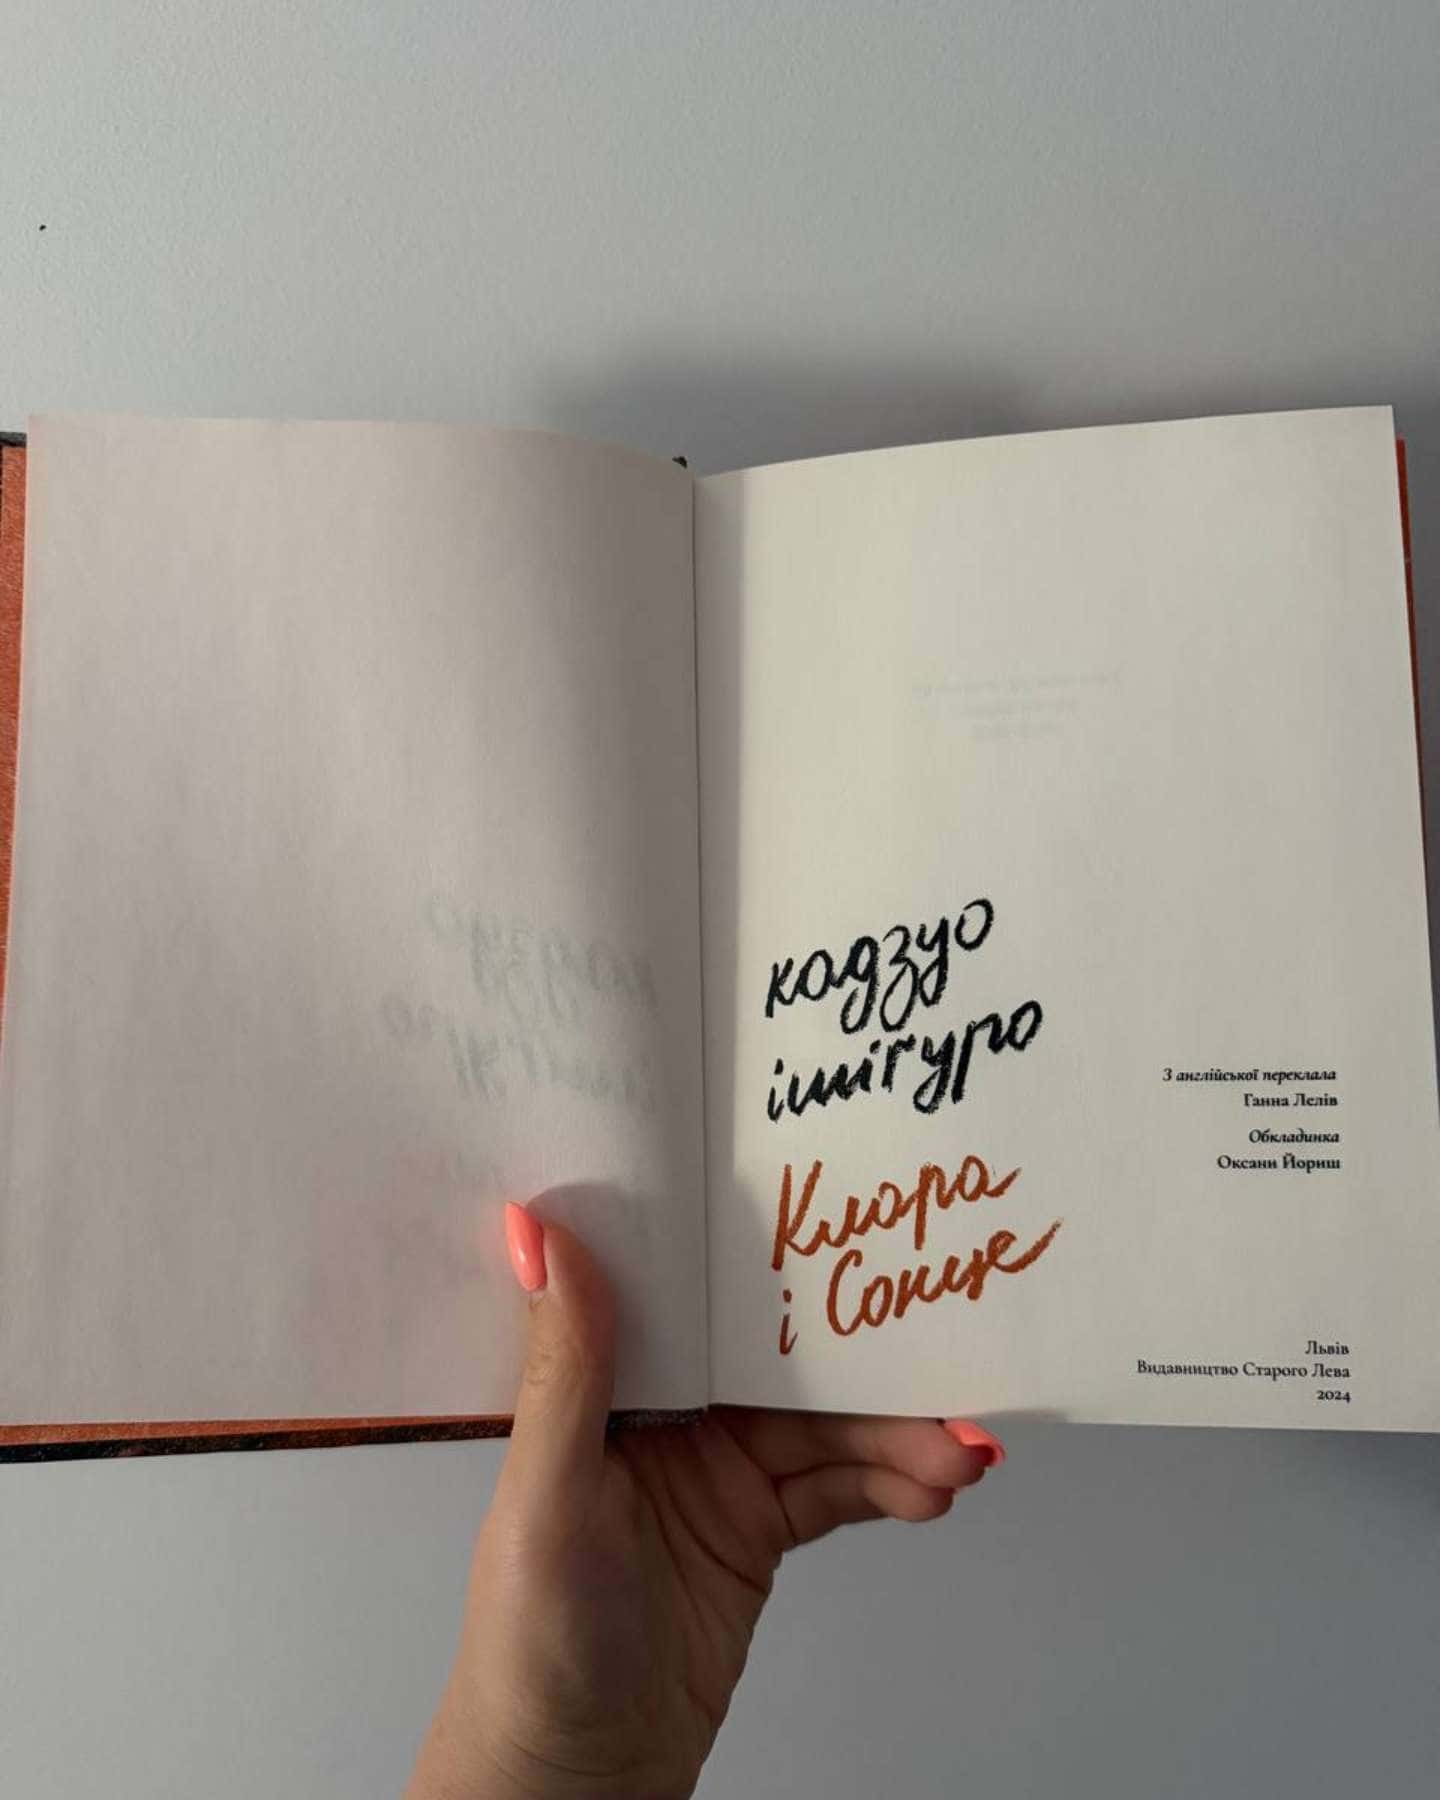 кадзуо
ішіґуро
Клара
і Сонце
З англійської переклала
Ганна Лелів
Обкладинка
Оксани Йориш
Львів
Видавництво Старого Лева
2024